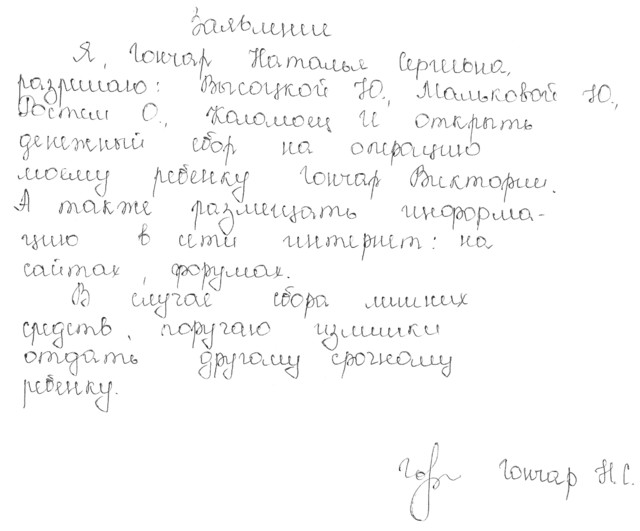 Заявление
Я, Гончар Наталья Сергеевна,
разрешаю: Высоцкой Ю., Мальковой Ю.,
Костем О., Каломоец И открыть
денежный сбор на операцию
моему ребенку Гончар Виктории.
А также размещать информа-
цию в сети интернет: на
сайтах, форумах.
В случае сбора лишних
средств, поручаю излишки
отдать другому срочному
ребенку.
Гончар Н.С.